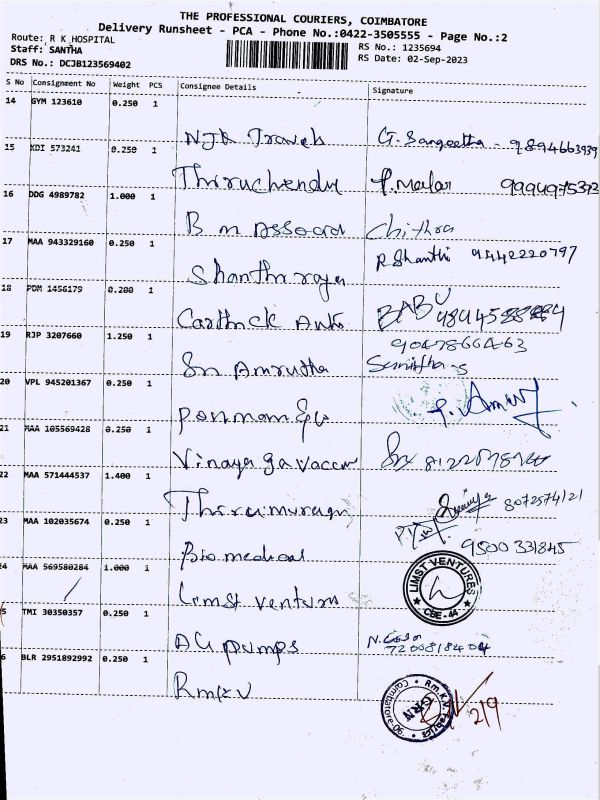 THE PROFESSIONAL COURIERS, COIMBATORE
Delivery Runsheet - PCA - Phone No.:0422-3505555 - Page No.:2
Route: R K HOSPITAL
Staff: SANTHA
DRS No.: DCJB123569402
RS No.: 1235694
RS Date: 02-Sep-2023
S No Consignment No Weight PCS Consignee Details Signature
14 GYM 123610 0.250 1
NJR Travels G. Sangeetha - 9894663939
15 KDI 573241 0.250 1
Thiruchendur P. Malar 9994975373
16 DDG 4989782 1.000 1
B m Assocoa Chithra
17 MAA 943329160 0.250 1
Shanthi raja R Shanthi 9442220797
18 PDM 1456179 0.200 1
Carthick Auto BABU
19 RJP 3207660 1.250 1
Sri Amrutha Sunitha-S
20 VPL 945201367 0.250 1
21 MAA 105569428 0.250 1
Vinayaga vaccum
22 MAA 571444537 1.400 1
Thirumurugan 8072574121
23 MAA 102035674 0.250 1
Bio medical 9500 331845
24 MAA 569580284 1.000 1
Limst ventures LIMST VENTURES CBE-44
5 TMI 30350357 0.250 1
AG pumps 7200818404
6 BLR 2951892992 0.250 1
Rmkv GRN 2/9